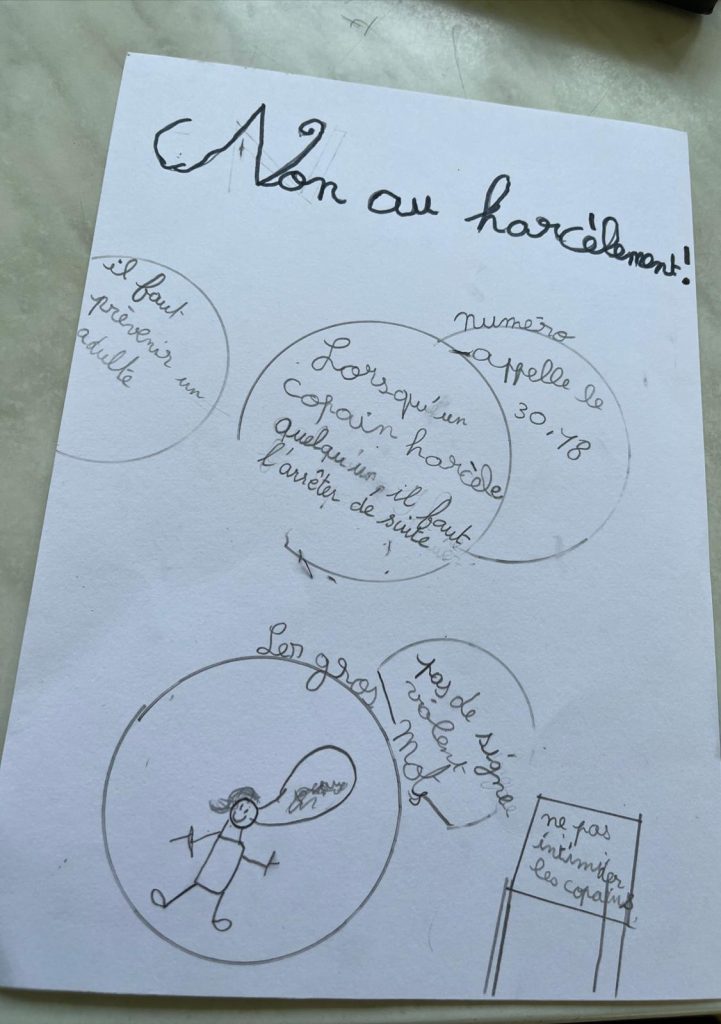 Non au harcèlement!
il faut
prévenir un
adulte
Lorsqu'un
copain harcèle
quelqu'un, il faut
l'arrêter de suite
numéro
appelle le
30.18
Les gros
mots
pas de signe
violent
ne pas
intimider
les copains